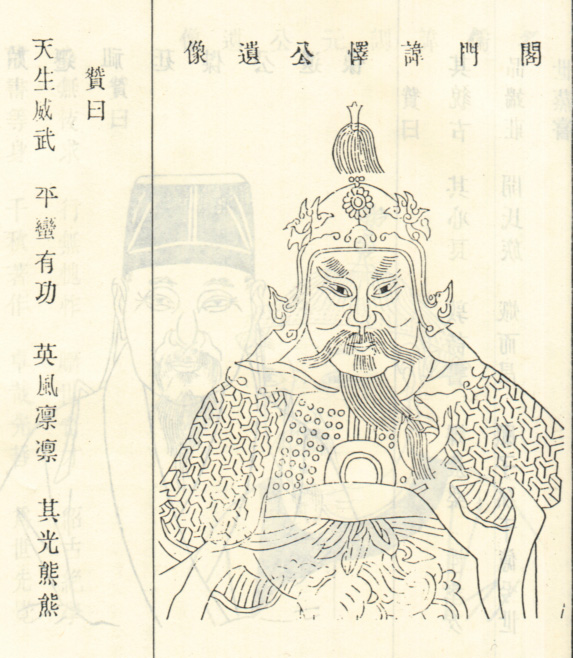 閣門諱懌公遺像
贊曰
天生威武 平蠻有功 英風凛凛 其光熊熊